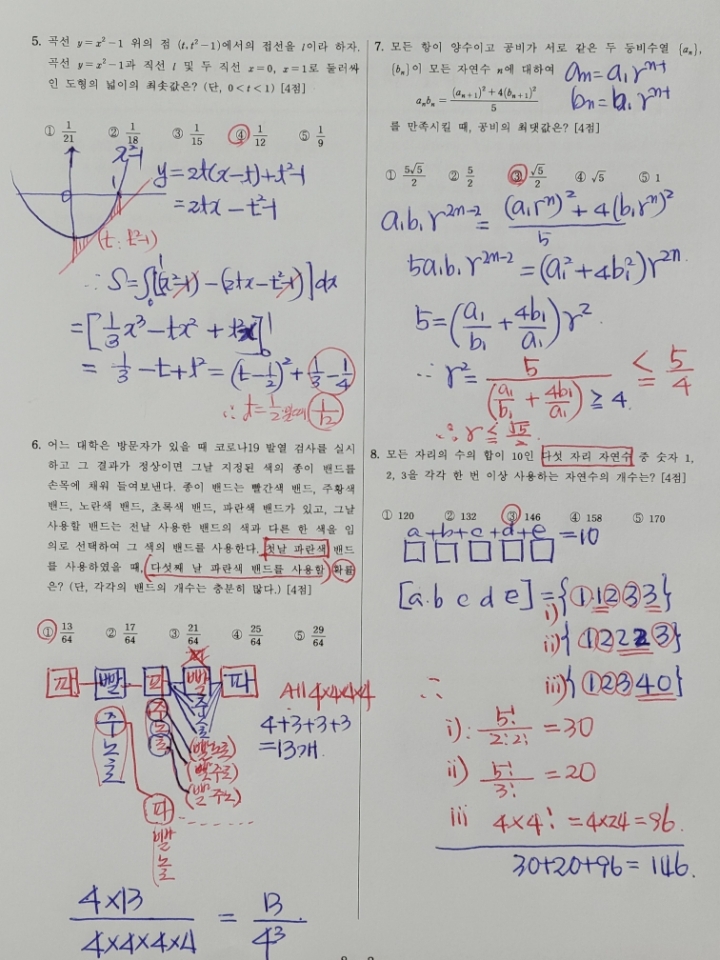 5. 곡선 y=x²-1 위의 점 (t, t²-1)에서의 접선을 l이라 하자.
곡선 y=x²-1과 직선 l 및 두 직선 x=0, x=1로 둘러싸
인 도형의 넓이의 최솟값은? (단, 0<t<1) [4점]
① 1/21 ② 1/18 ③ 1/15 ④ 1/12 ⑤ 1/9
x²-1
1
0
(t, t²-1)
y=2t(x-t)+t²-1
=2tx-t²-1
∴ S=∫₀¹[(x²-1)-(2tx-t²-1)]dx
=[1/3x³-tx²+t²x]₀¹
=1/3-t+t²=(t-1/2)²+1/3-1/4
∴ t=1/2일때 1/12
6. 어느 대학은 방문자가 있을 때 코로나19 발열 검사를 실시
하고 그 결과가 정상이면 그날 지정된 색의 종이 밴드를
손목에 채워 들여보낸다. 종이 밴드는 빨간색 밴드, 주황색
밴드, 노란색 밴드, 초록색 밴드, 파란색 밴드가 있고, 그날
사용할 밴드는 전날 사용한 밴드의 색과 다른 한 색을 임
의로 선택하여 그 색의 밴드를 사용한다. 첫날 파란색 밴드
를 사용하였을 때, 다섯째 날 파란색 밴드를 사용할 확률
은? (단, 각각의 밴드의 개수는 충분히 많다.) [4점]
① 13/64 ② 17/64 ③ 21/64 ④ 25/64 ⑤ 29/64
파 빨 파 빨 파
All 4×4×4×4
주 주 주
노 노 노
초 초 초
(빨노초)
(빨주초)
(빨주노)
4+3+3+3
=13개
파
빨
노
초
4×13/4×4×4×4 = 13/4³
7. 모든 항이 양수이고 공비가 서로 같은 두 등비수열 {aₙ},
{bₙ}이 모든 자연수 n에 대하여
aₙ=a₁rⁿ⁻¹
bₙ=b₁rⁿ⁻¹
aₙbₙ=(aₙ₊₁)²+4(bₙ₊₁)²/5
를 만족시킬 때, 공비의 최댓값은? [4점]
① 5√5/2 ② 5/2 ③ √5/2 ④ √5 ⑤ 1
a₁b₁r²ⁿ⁻²=(a₁rⁿ)²+4(b₁rⁿ)²/5
5a₁b₁r²ⁿ⁻²=(a₁²+4b₁²)r²ⁿ
5=(a₁/b₁+4b₁/a₁)r²
∴ r²=5/(a₁/b₁+4b₁/a₁) ≤ 5/4
≥4
∴ r≤√5/2
8. 모든 자리의 수의 합이 10인 다섯 자리 자연수 중 숫자 1,
2, 3을 각각 한 번 이상 사용하는 자연수의 개수는? [4점]
① 120 ② 132 ③ 146 ④ 158 ⑤ 170
a+b+c+d+e=10
[a.b c d e]=i){①1②3③}
ii){①②22③}
iii){①②③40}
∴
i): 5!/2!2! =30
ii) 5!/3! =20
iii 4×4! =4×24=96.
30+20+96=146.